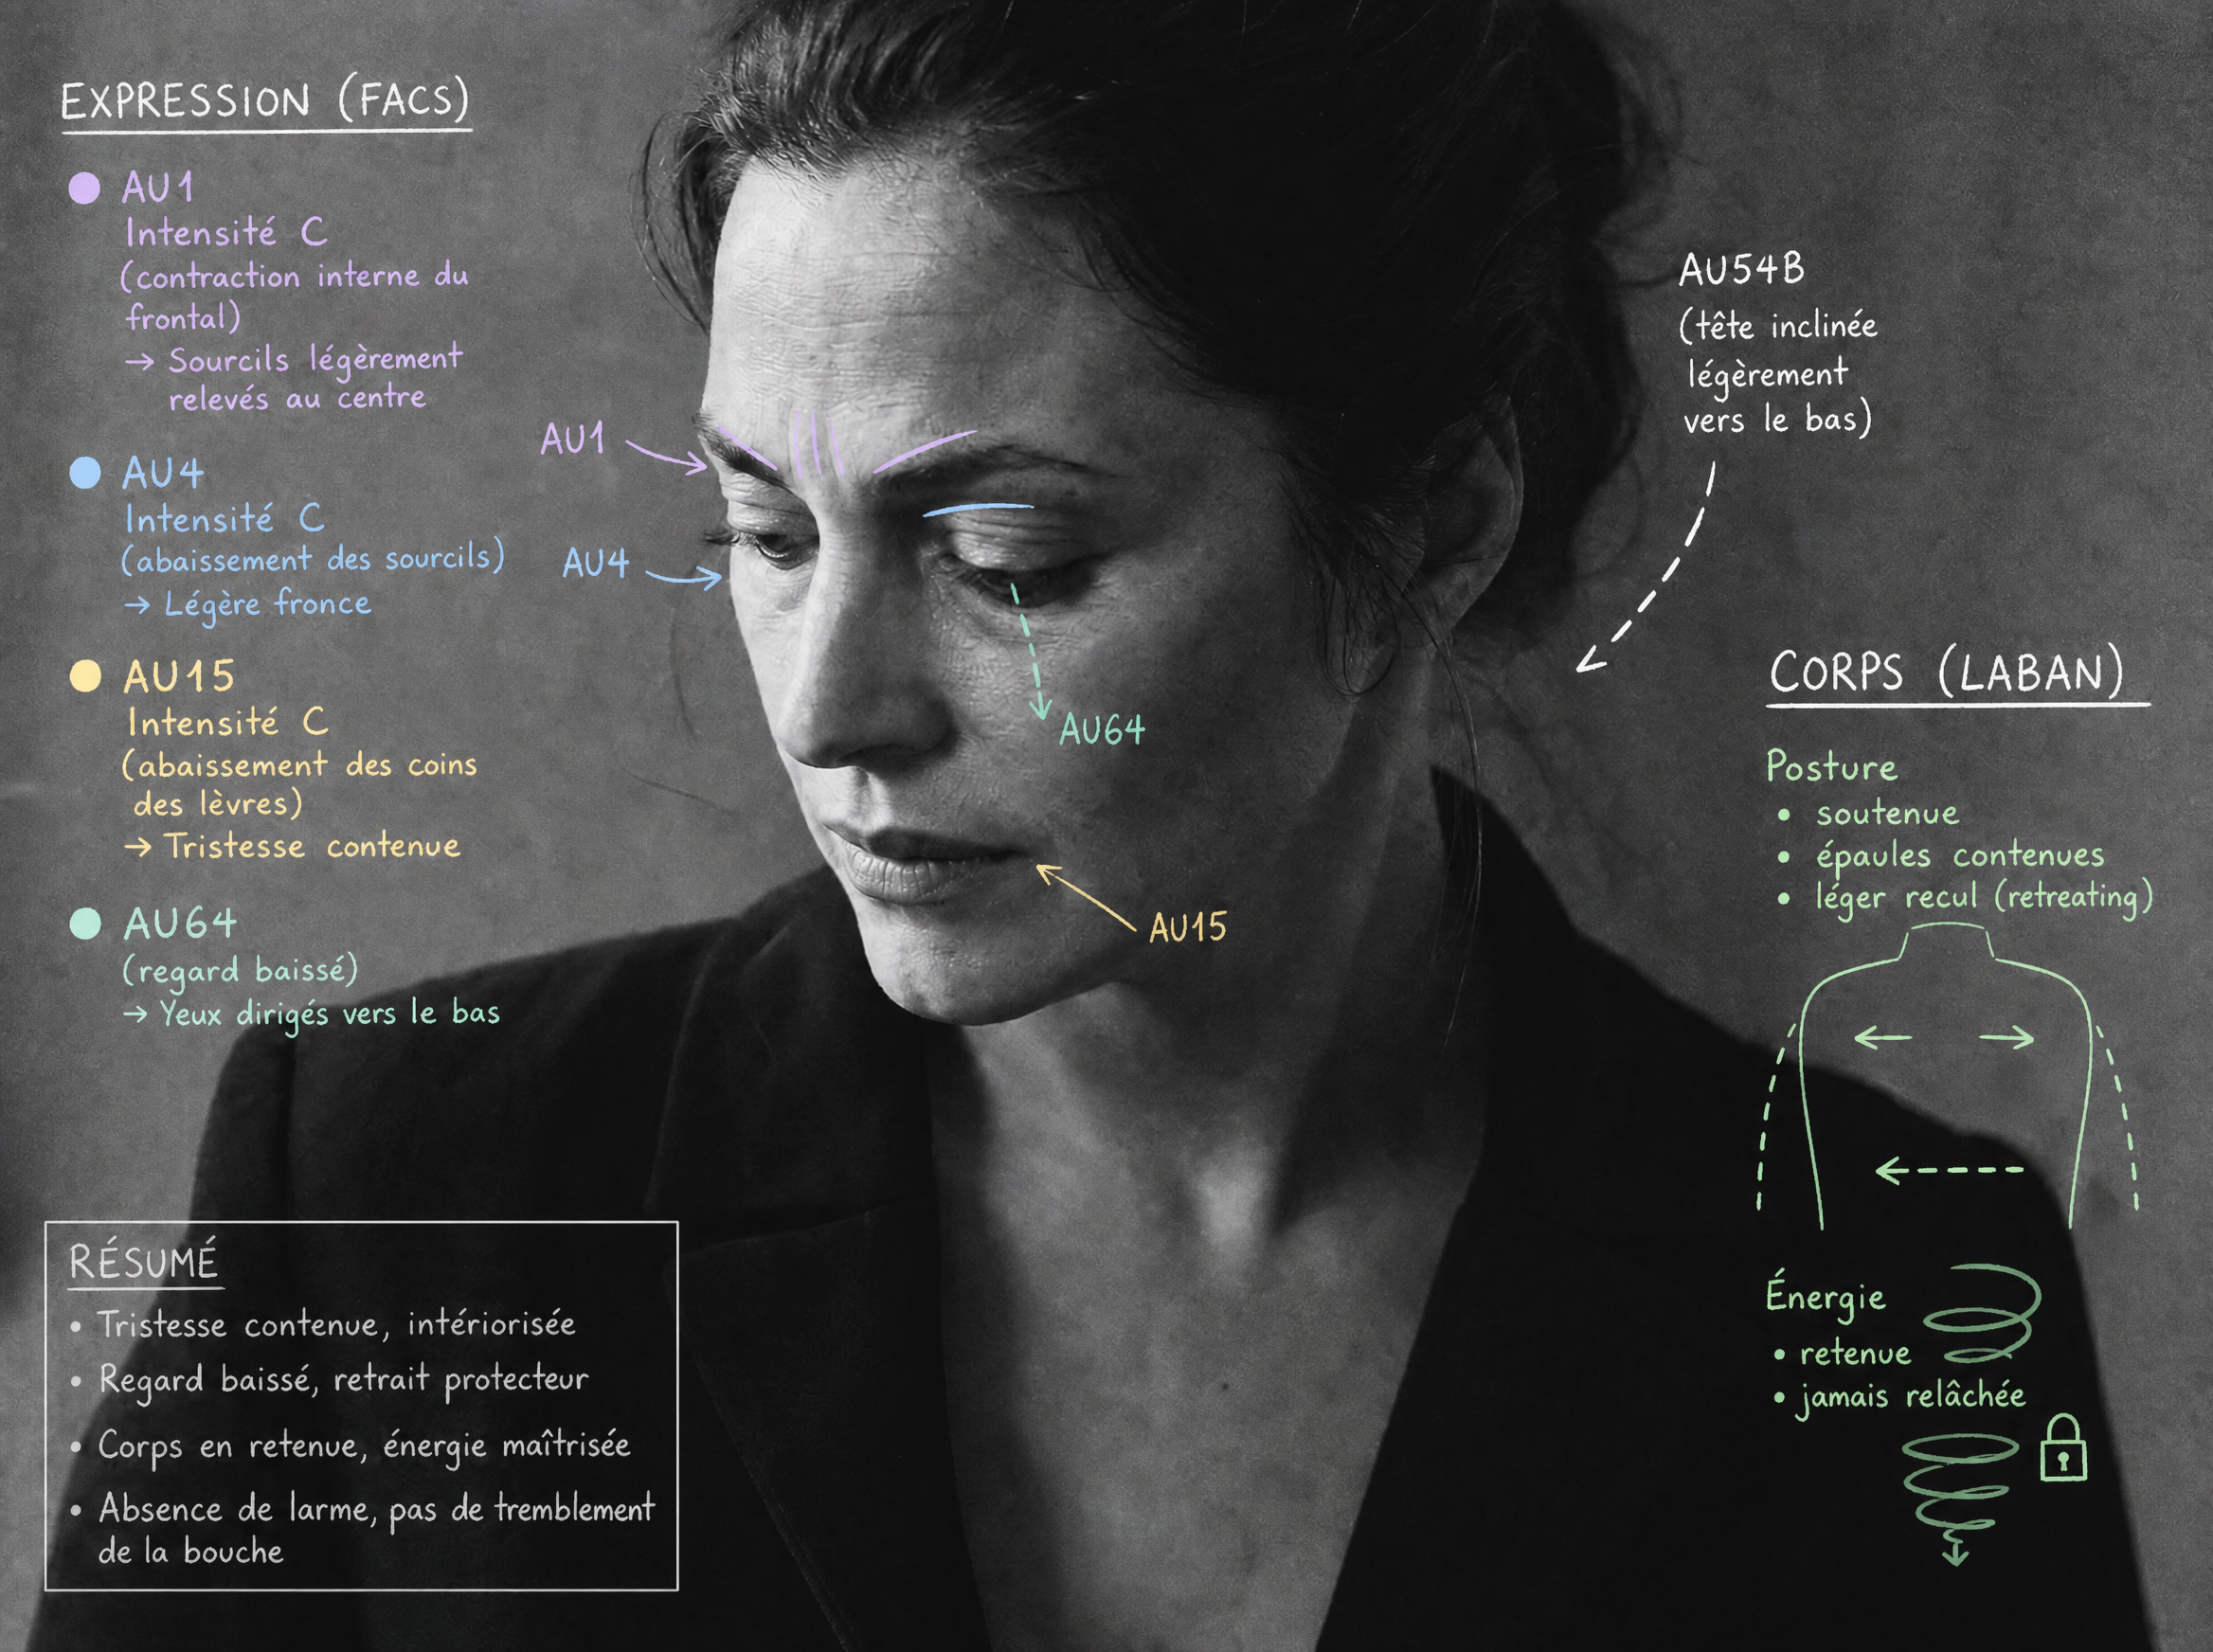 EXPRESSION (FACS)
AU1
Intensité C
(contraction interne du
frontal)
→ Sourcils légèrement
relevés au centre
AU4
Intensité C
(abaissement des sourcils)
→ Légère fronce
AU15
Intensité C
(abaissement des coins
des lèvres)
→ Tristesse contenue
AU64
(regard baissé)
→ Yeux dirigés vers le bas
AU1
AU4
AU64
AU15
AU54B
(tête inclinée
légèrement
vers le bas)
CORPS (LABAN)
Posture
• soutenue
• épaules contenues
• léger recul (retreating)
Énergie
• retenue
• jamais relâchée
RÉSUMÉ
• Tristesse contenue, intériorisée
• Regard baissé, retrait protecteur
• Corps en retenue, énergie maîtrisée
• Absence de larme, pas de tremblement
de la bouche